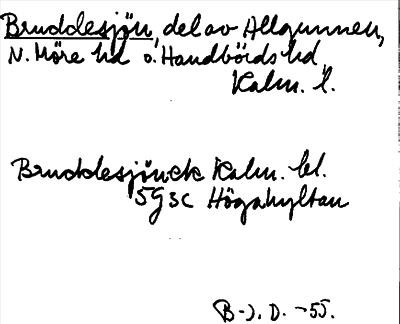 Bruddesjön, del av Allgunnen,
N. Möre hd o. Handbörds hd,
Kalm. l.
Bruddesjön ek Kalm. bl.
5G3c Högahyltan
B-J. D. -55.